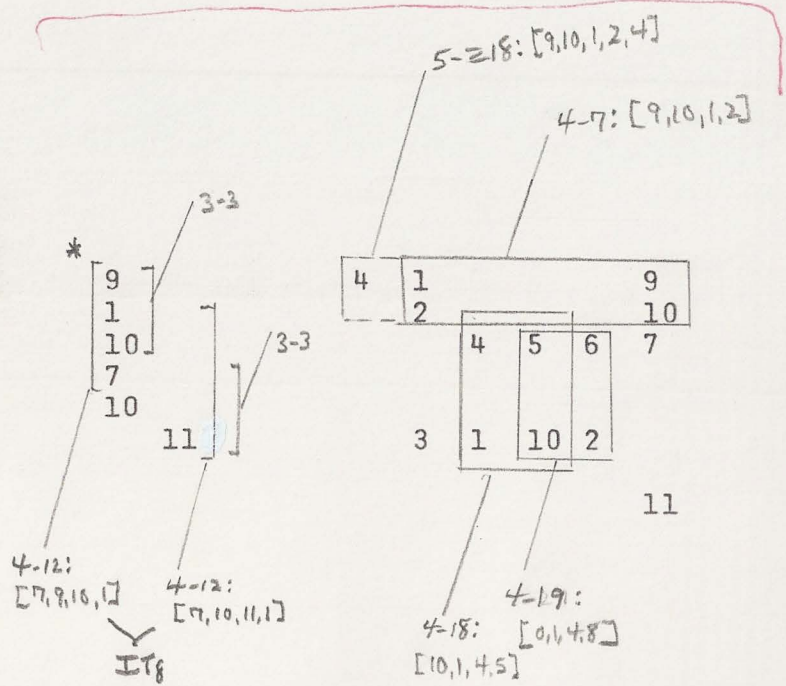 5-Z18: [9,10,1,2,4]
4-7: [9,10,1,2]
3-3
*
9
1
10
7
10
11
3-3
4 1 9
2 10
4 5 6 7
3 1 10 2
11
4-12:
[7,9,10,1]
4-12:
[7,10,11,1]
IT8
4-18:
[10,1,4,5]
4-19:
[0,1,4,8]